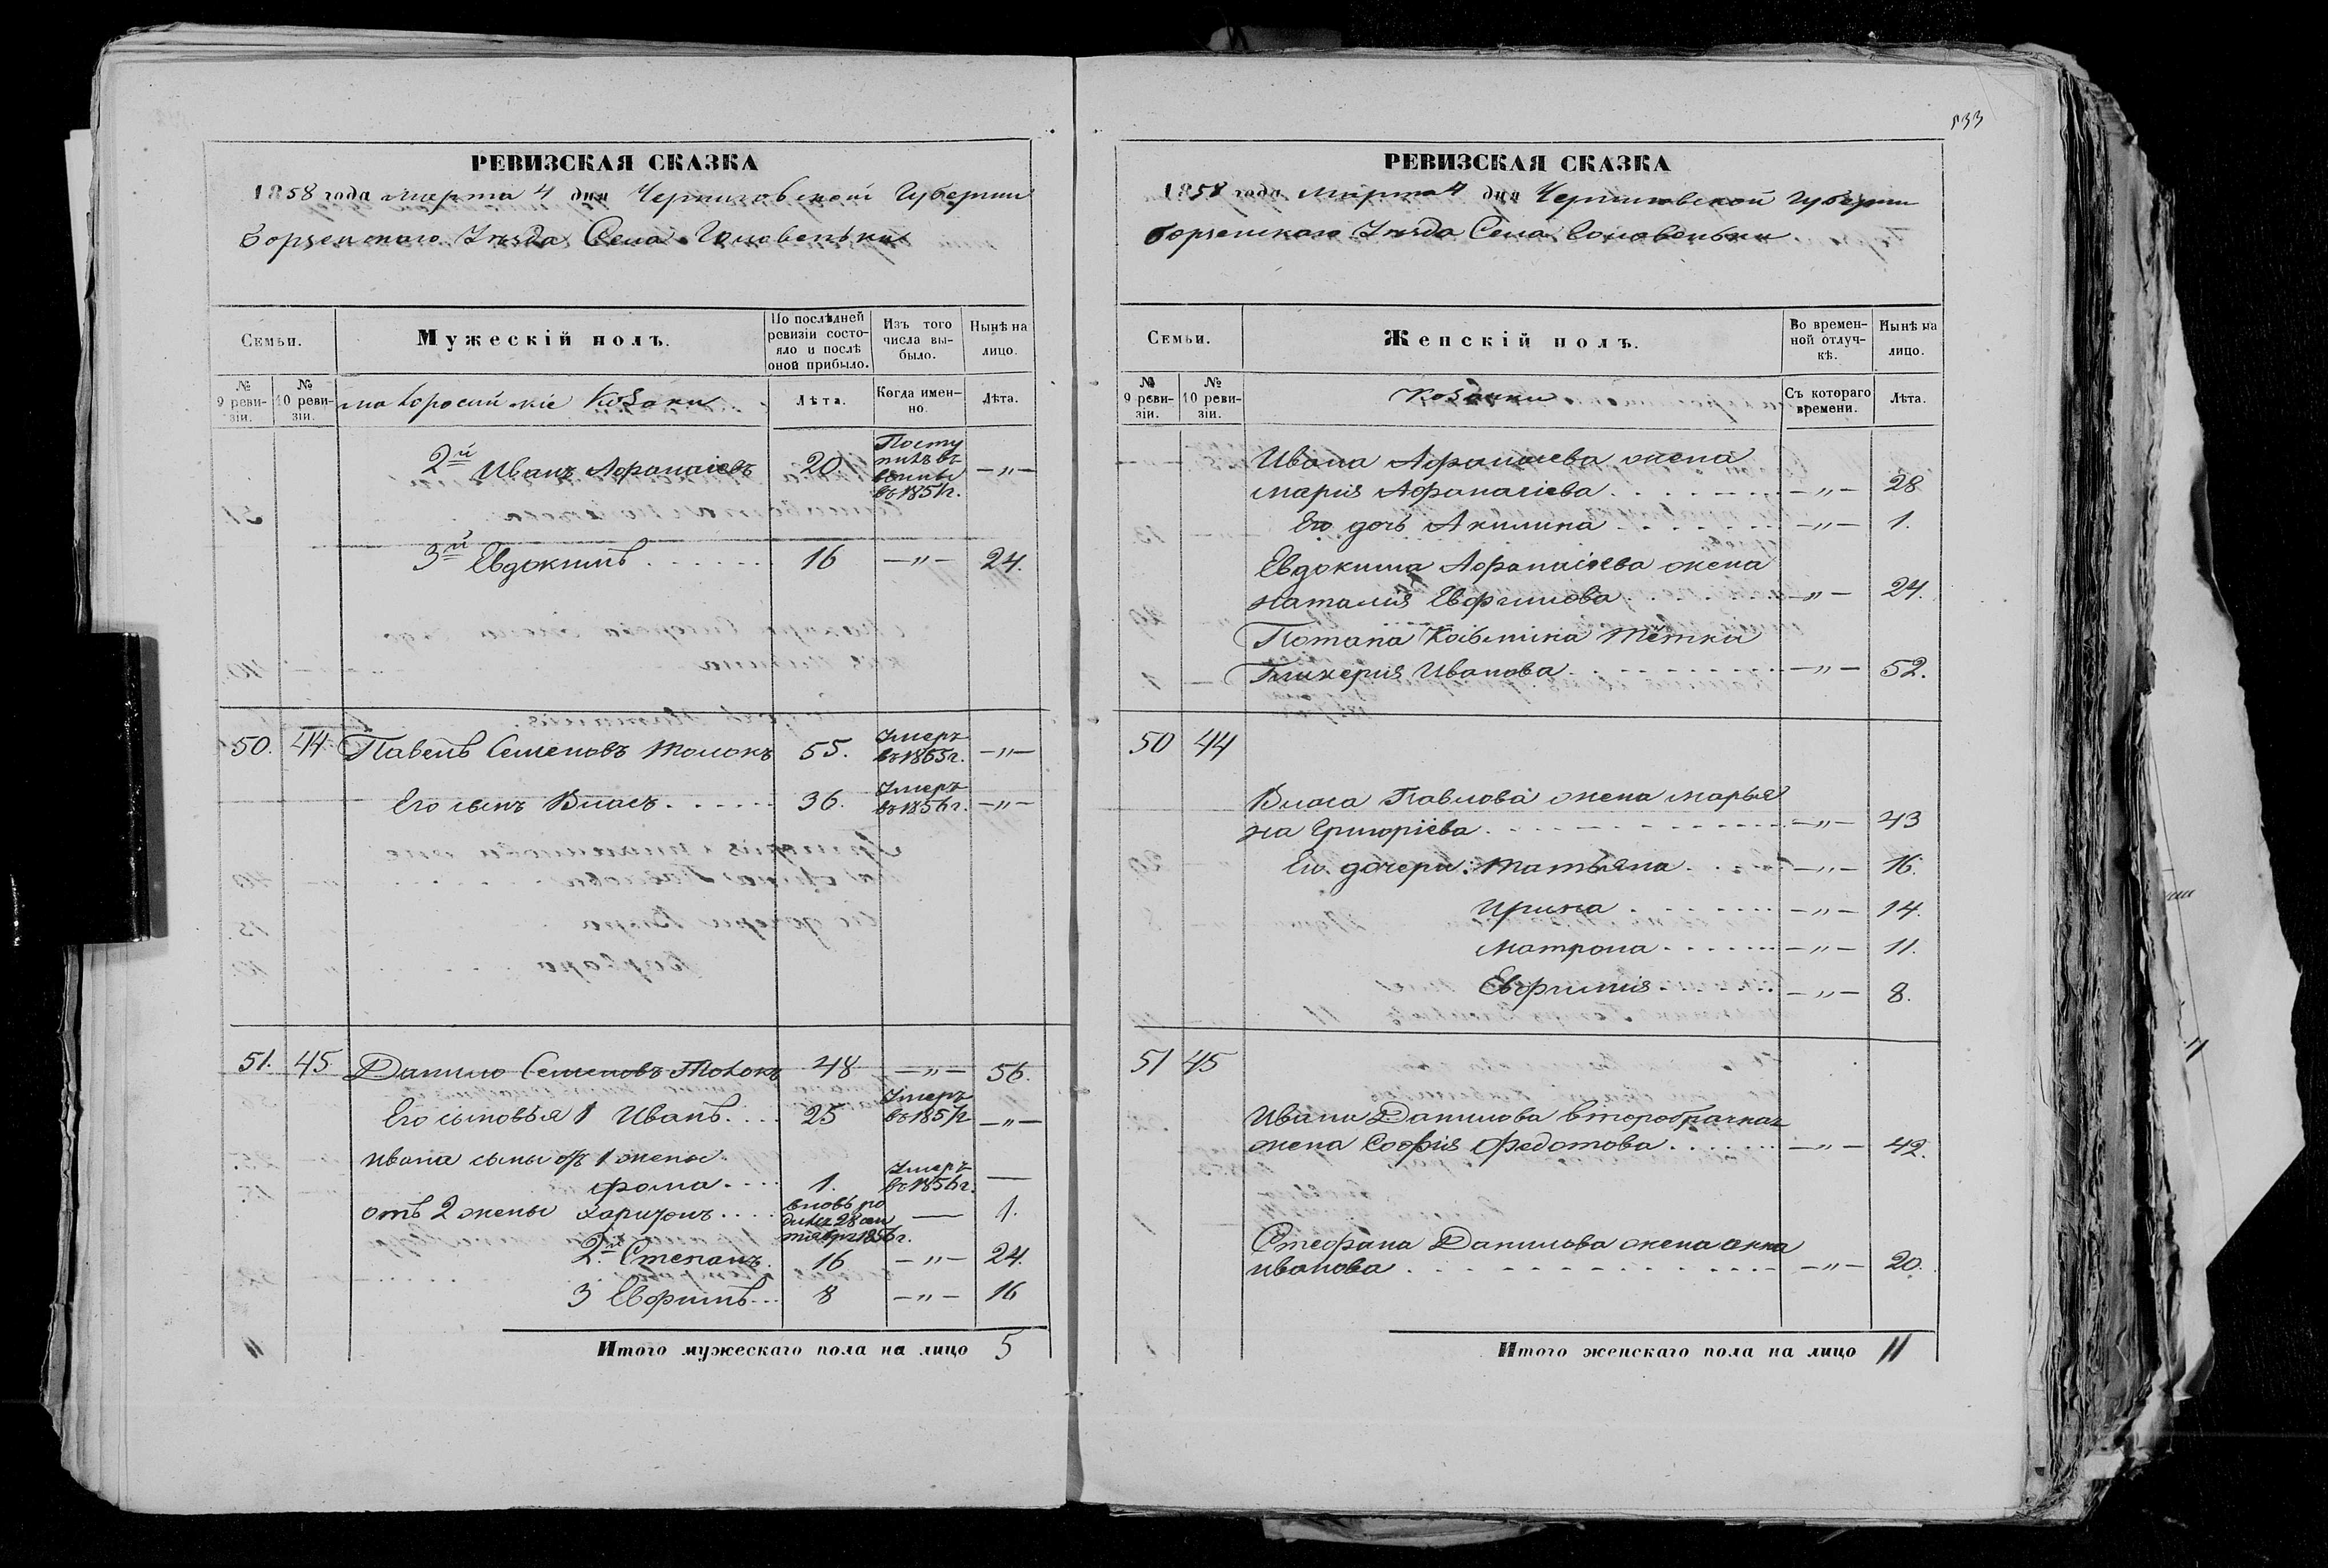 РЕВИЗСКАЯ СКАЗКА
1858 года Марта 4 дня Черниговской Губернии
Борзенского Уѣзда Села Головеньки
Семьи.
Мужескій полъ.
По послѣдней ревизіи состояло и послѣ оной прибыло.
Изъ того числа выбыло.
Нынѣ на лицо.
№ 9 ревизіи.
№ 10 ревизіи.
малоросійскіе Козаки
Лѣта.
Когда именно.
Лѣта.
2й Иванъ Афанасіевъ 20. Поступилъ въ въ 1851г. —〃—
3й Евдокимъ . . . . . . 16 —〃— 24.
50. 44 Павелъ Семеновъ Толокъ 55. Умеръ въ 1855г. —〃—
Его сынъ Власъ . . . . . . 36. Умеръ въ 1856г. —〃—
51. 45 Данило Семеновъ Толокъ 48 —〃— 56.
Его сыновья 1 Иванъ . . . . 25 Умеръ въ 1857г —〃—
Ивана сыны отъ 1 жены
Фома . . . . 1. Умеръ въ 1856г. —
отъ 2 жены Харитонъ . . . . вновь родился 28 сентября 1856г. — 1.
2й Степанъ. 16 —〃— 24.
3 Евфимъ . . . 8 —〃— 16
Итого мужескаго пола на лицо 5
533
РЕВИЗСКАЯ СКАЗКА
1858 года Марта 4 дня Черниговской Губернии
Борзенского Уѣзда Села Головеньки
Семьи.
Женскій полъ.
Во временной отлучкѣ.
Нынѣ на лицо.
№ 9 ревизіи.
№ 10 ревизіи.
Козачки
Съ котораго времени.
Лѣта.
Ивана Афанасіева жена
Марія Афанасіева . . . . . . . —〃— 28
Его дочь Акилина . . . . . . —〃— 1.
Евдокима Афанасіева жена
Наталия Евфимова . . . . . . —〃— 24.
Потапа Козьмина тётка
Гликерия Иванова . . . . . . . —〃— 52.
50 44
Власа Павлова жена Марья
на Григоріева . . . . . . . . . . —〃— 43
Его дочери: Татьяна . . . . —〃— 16.
Ирина . . . . . . . —〃— 14.
Матрона . . . . . . —〃— 11.
Евфимия . . . . . . —〃— 8.
51 45
Ивана Данилова второбрачная
жена София Федотова . . . . . . —〃— 42.
Стефана Данилова жена Анна
Иванова . . . . . . . . . . . —〃— 20.
Итого женскаго пола на лицо 11